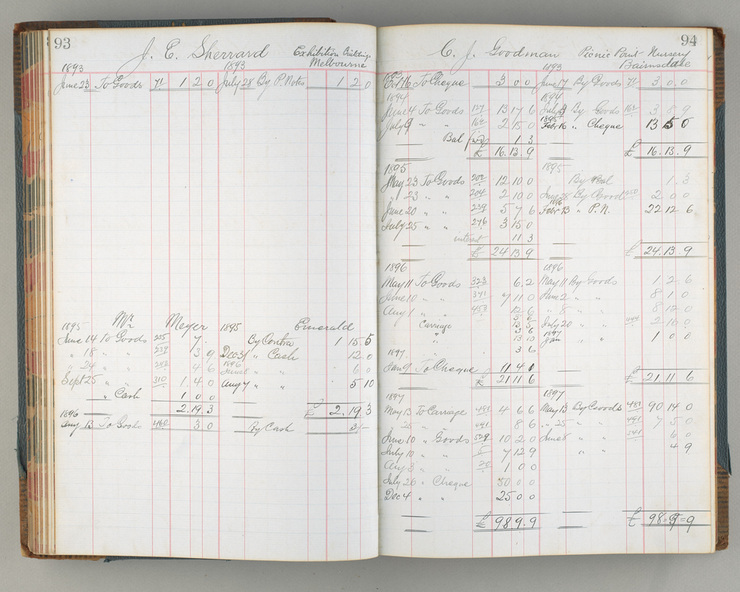 93
J. E. Sherrard Exhibition Buildings
Melbourne
1893 1893
June 23 To Goods 71 1 2 0 July 28 By P. Notes 1 2 0
Mr Meyer Emerald
1895 1895
June 14 To Goods 225 7 By Contra 1 15 5
" 18 " " 3 9 Dec 31 " Cash 12 0
" 24 " " 252 4 6 6 0
Sept 25 " " 310 1 4 0 Aug 7 " " 5 10
" Cash 1 0 0
2.19.3 £ 2.19.3
1896
Aug 13 To Goods 460 3 0 By Cash 3/-
94
C. J. Goodman Picnic Point Nursery
Bairnsdale
1893
Oct 16 To Cheque 3 0 0 June 17 By Goods 71 3 0 0
1894 1894
June 4 To Goods 137 13 17 6 July 9 By Goods 162 3 1 9
July 9 " " 162 2 15 0 1895 Feb 16 " Cheque 13 5 0
Bal 1 3
£ 16.13.9 £ 16.13.9
1895 1895
May 23 To Goods 202 12 10 0 By Bal 1 3
" 23 " " 204 2 10 0 June By Goods 2 0 0
June 20 " " 5 7 6 Feb 13 " P.N. 22 12 6
July 25 " " 276 3 15 0
interest 11 3
£ 24.13.9 £ 24.13.9
1896 1896
May 11 To Goods 323 6 2 May 11 By Goods 1 2 6
June 10 " " 341 7 11 0 June 2 " " 8 1 0
Aug 1 " " 453 12 6 " 8 " " 8 12 0
Carriage July 20 " " 2 10 0
1897 Jan " 1 0 0
3 6
1897
Jan 9 To Cheque 11 4 0
£ 21 11 6 £ 21 11 6
1897 1897
May 13 To Carriage 481 4 6 6 May 13 By Goods 481 90 14 0
25 " 491 8 6 " 25 " " 491 7 5 0
June 10 " Goods 529 10 2 0 June 8 " " 541 6 0
July 10 " " 7 12 9 4 9
Aug 8 " " 1 0 0
July 26 " Cheque 50 0 0
Dec 4 " " 25 0 0
£ 98 9.9 £ 98=9=9